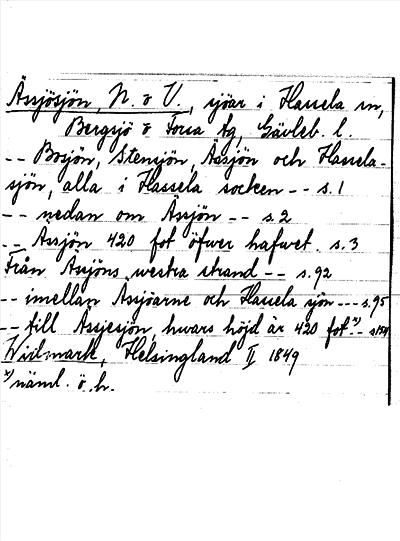 Ässjösjön, N. o V., sjöar i Hassela sn,
Bergsjö o Forsa tg, Gävleb. l.
-- Bosjön, Stensjön, Assjön och Hassela-
sjön, alla i Hassela socken -- s. 1
-- nedan om Assjön -- s. 2
-- Assjön 420 fot öfwer hafwet. s. 3
Från Assjöns westra strand -- s. 92
-- imellan Assjöarne och Hassela sjön --- s. 95
-- till Assjesjön, hwars höjd är 420 fot x) --
Widmark, Helsingland II 1849
x) näml. ö. h.